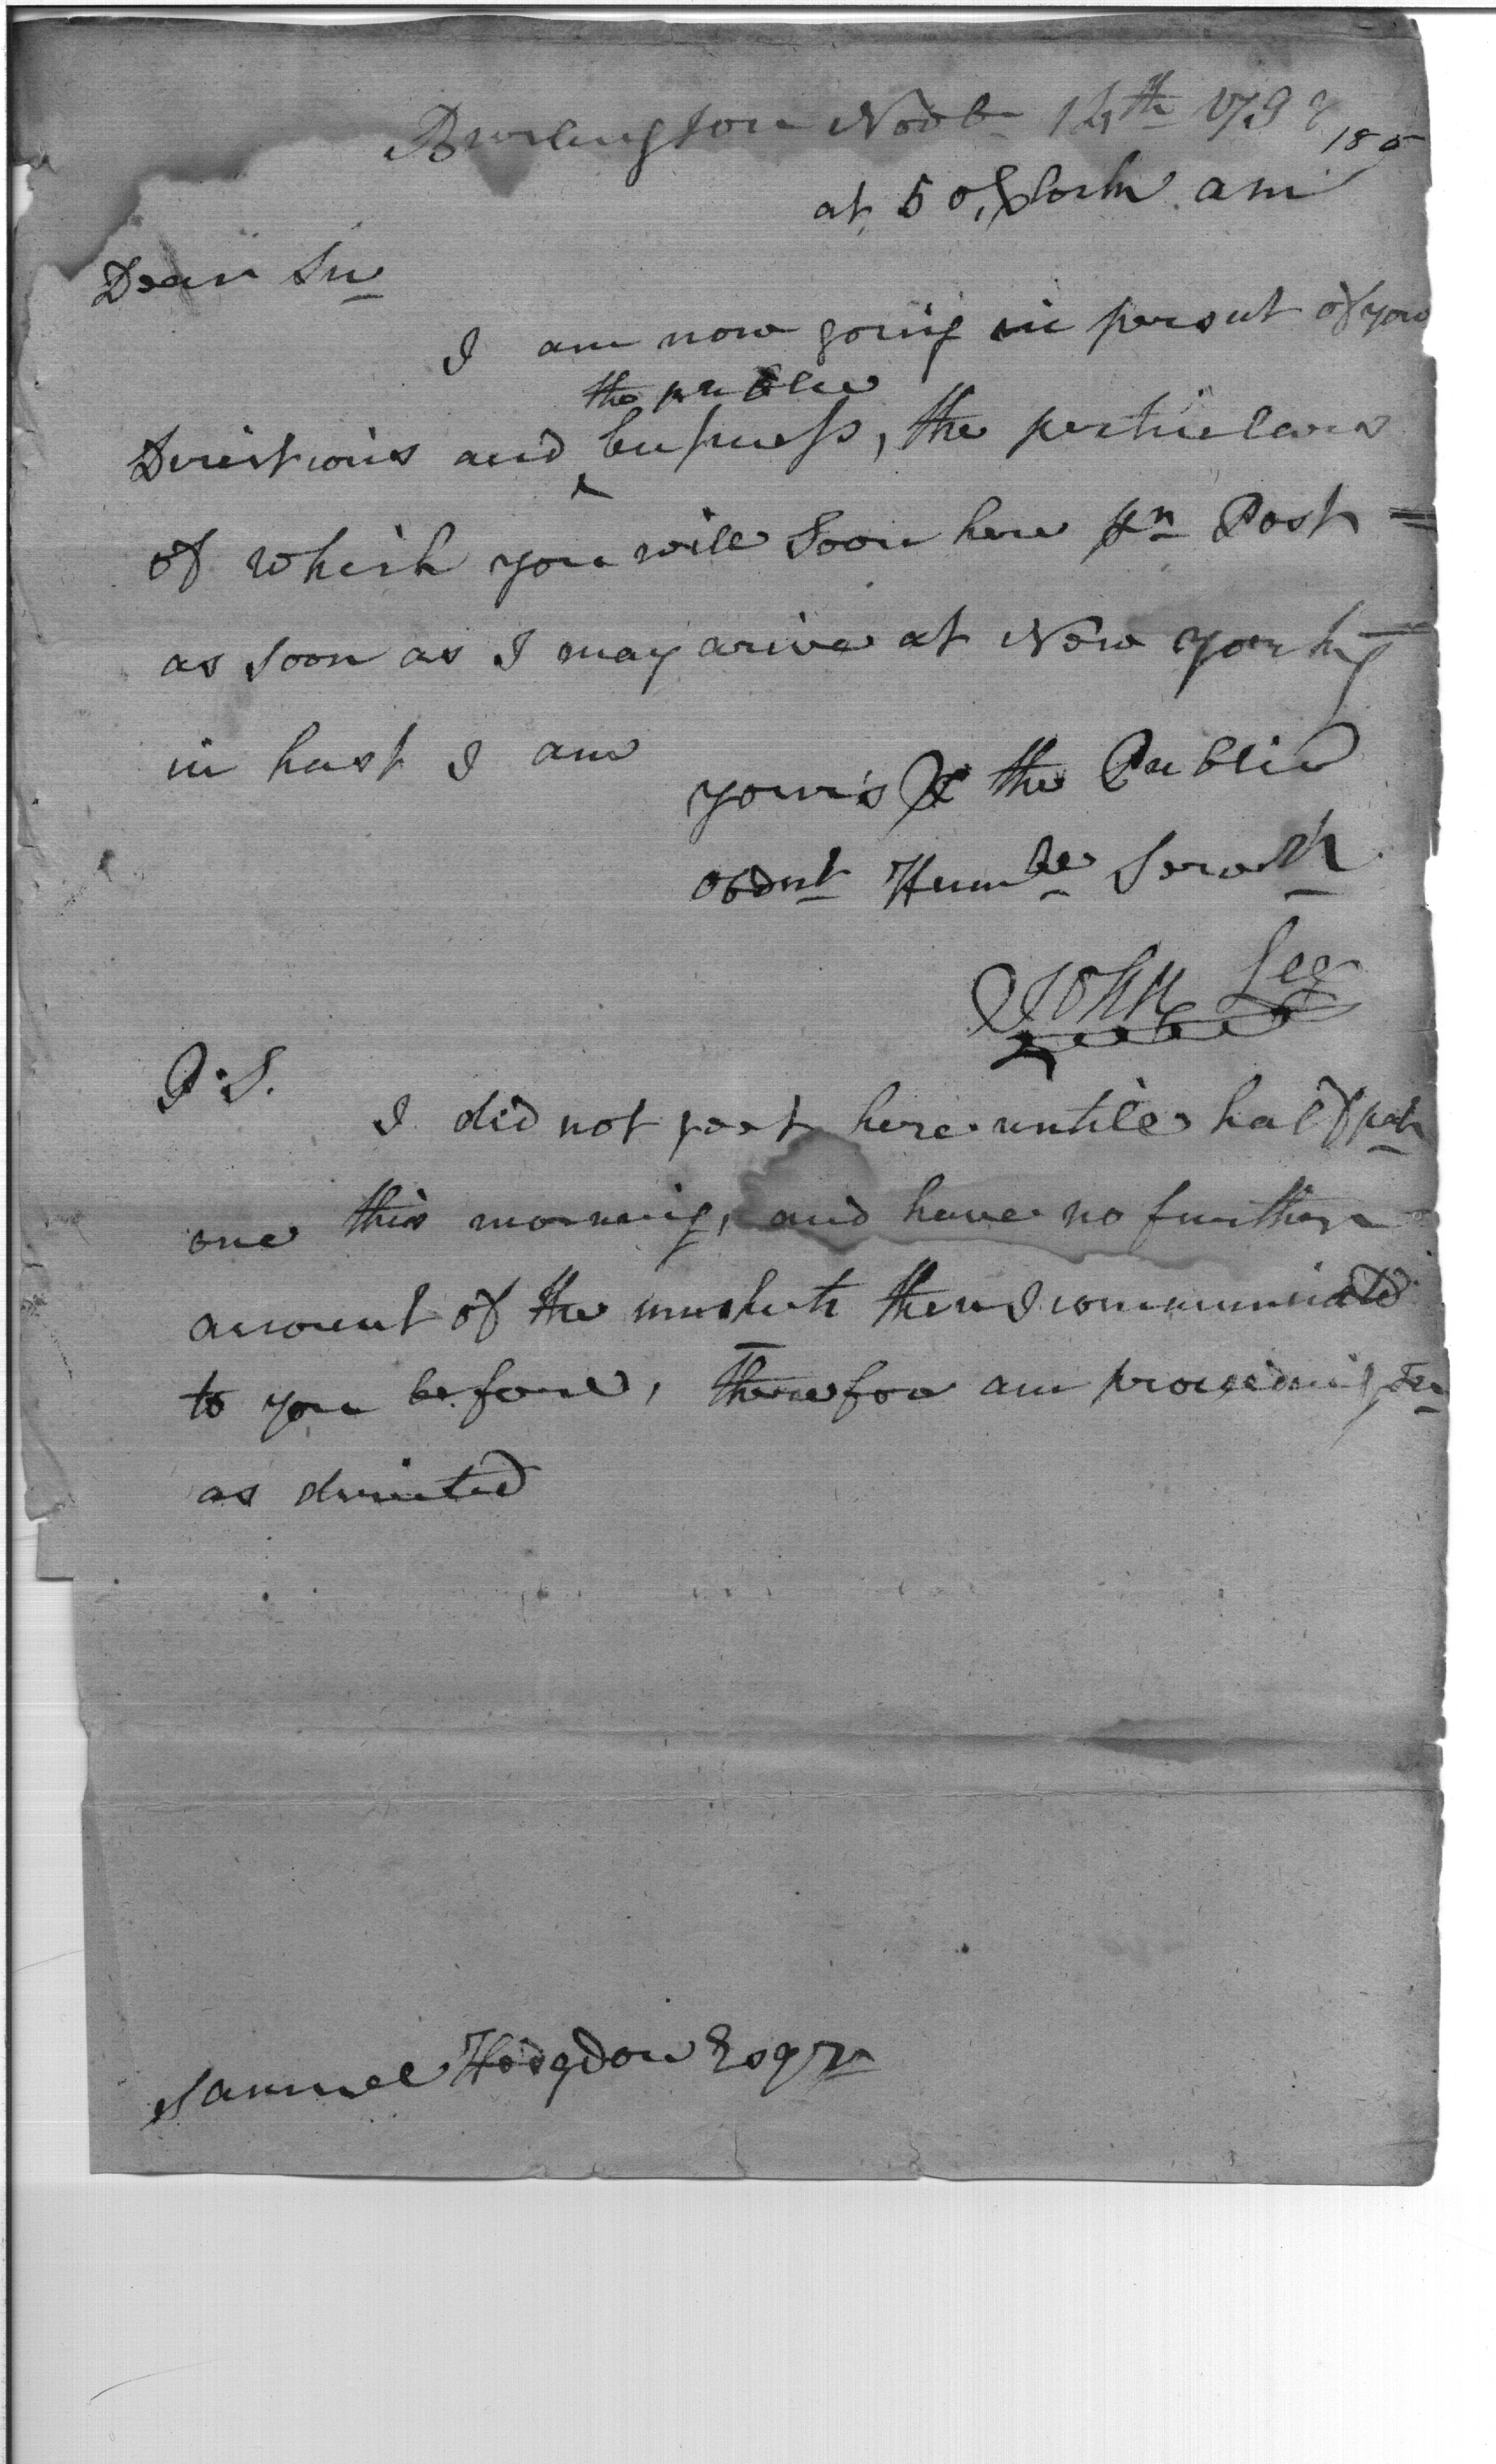 Burlington Novbr 14th 179
185
at 5 o,Clock am
Dear Sir
I am now going in persut of your
the publice
Directions and ^ business, the perticulars
of which you will soon here pr Post =
as soon as I may arive at New york,
in hast I am
your's & the Public
obdnt Humble Servth
John Lee
P.S.
I did not geet here untile half pst
one this morning, and have no further
account of the muskets then I communicated
to you before, therefore am proceeding
as directed
Samuel Hodgdon Esqr